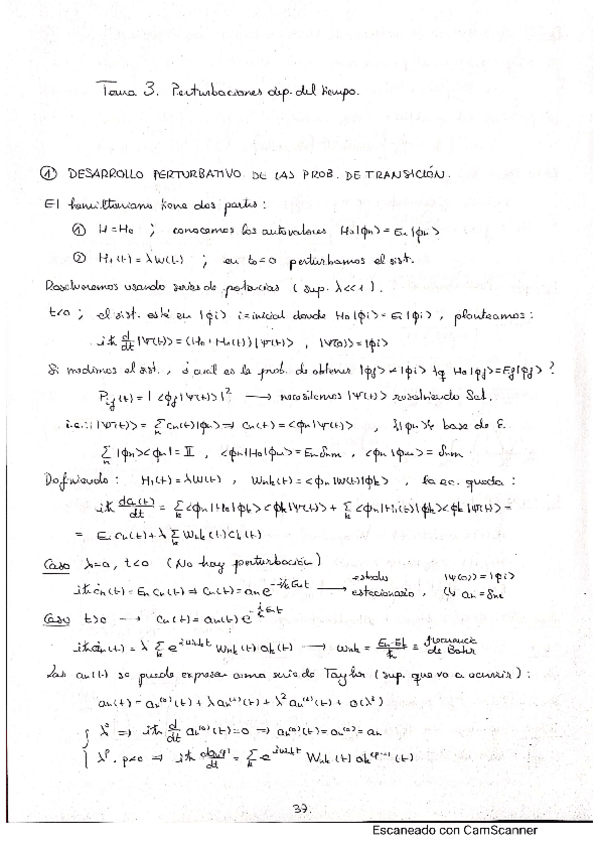 Tema 3. Perturbaciones dep. del tiempo.
① DESARROLLO PERTURBATIVO DE LAS PROB. DE TRANSICIÓN.
El hamiltoniano tiene dos partes:
① H=H₀ ; conocemos los autovalores H₀|φn> = En|φn>
② H₁(t)=λW(t) ; en t₀=0 perturbamos el sist.
Resolveremos usando series de potencias (sup. λ<<1).
t<0 ; el sist. esté en |φi> i=inicial donde H₀|φi> = Ei|φi> , planteamos:
iħ d/dt |Ψ(t)> = (H₀+H₁(t))|Ψ(t)> , |Ψ(0)> = |φi>
Si medimos el sist., ¿cuál es la prob. de obtener |φf> ≠ |φi> tq H₀|φf> = Ef|φf> ?
Pif(t) = |<φf|Ψ(t)>|² → necesitamos |Ψ(t)> resolviendo Sch.
i.e.: |Ψ(t)> = Σn cn(t)|φn> ⇒ cn(t) = <φn|Ψ(t)> , {|φn>} base de E.
Σn |φn><φn| = 𝕀 , <φn|H₀|φm> = En δnm , <φn|φm> = δnm.
Definiendo: H₁(t)=λW(t) , Wnk(t) = <φn|W(t)|φk> , la ec. queda:
iħ dcn(t)/dt = Σk <φn|H₀|φk><φk|Ψ(t)> + Σk <φn|H₁(t)|φk><φk|Ψ(t)> =
= En cn(t) + λ Σk Wnk(t) ck(t)
Caso λ=0, t<0 (No hay perturbación)
iħ ċn(t) = En cn(t) ⇒ cn(t) = an e^{-i/ħ En t} → estados estacionario , |Ψ(0)> = |φi> ↳ an = δni
Caso t>0 → cn(t) = an(t) e^{-i/ħ En t}
iħ ȧn(t) = λ Σk e^{iωnkt} Wnk(t) ak(t) → ωnk = En-Ek/ħ = frecuencia de Bohr
Las an(t) se puede expresar como serie de Taylor (sup. que va a ocurrir):
an(t) = an⁽⁰⁾(t) + λan⁽¹⁾(t) + λ²an⁽²⁾(t) + o(λ²)
λ⁰ ⇒ iħ d/dt an⁽⁰⁾(t) = 0 ⇒ an⁽⁰⁾(t) = an⁽⁰⁾ = an
λᵖ, p≠0 ⇒ iħ dan⁽ᵖ⁾/dt = Σk e^{iωnkt} Wnk(t) ak⁽ᵖ⁻¹⁾(t)
37.
Escaneado con CamScanner